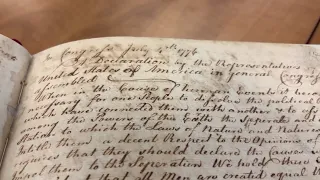 In Congress July 4th 1776
A Declaration by the Representatives
United States of America in general Congress
Assembled
When in the Course of human Events it beco
necessary for one People to dissolve the political B
which have connected them with another & to
among the Powers of the Earth the Seperate and
Station to which the Laws of Nature and Nature
them a decent Respect to the Opinions of
requires that they should declare the Causes
them to the Seperation We hold these
Men are created equal